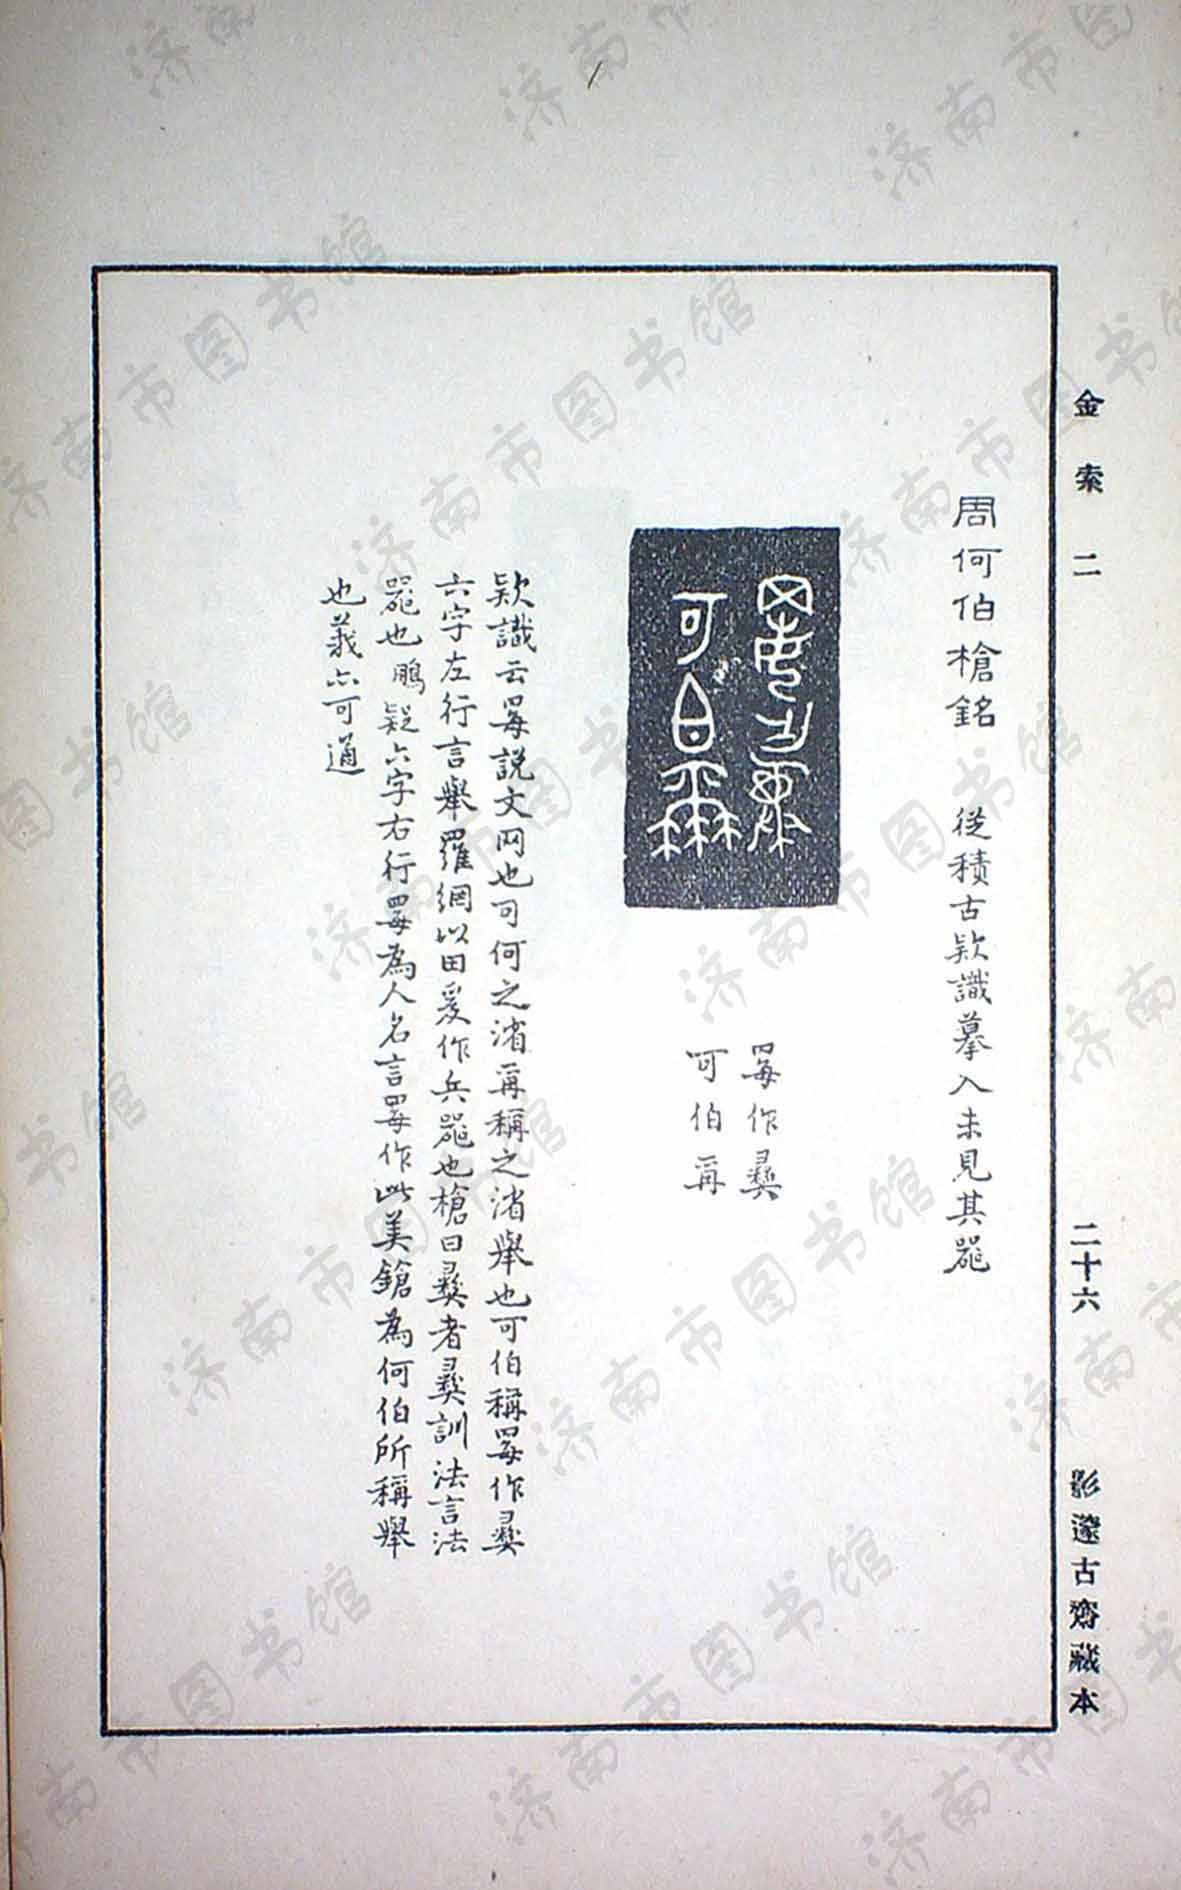 金索二 二十六 影邃古齋藏本
周何伯槍銘 從積古款識摹入未見其器
𦊁作彞
可伯爯
款識云𦊁說文网也可何之渻爯稱之渻舉也可伯稱𦊁作彞
六字左行言舉羅網以田爰作兵器也槍曰彞者彞訓法言法
器也鵬疑六字右行𦊁為人名言𦊁作此美鎗為何伯所稱舉
也義亦可通
济南市图书馆